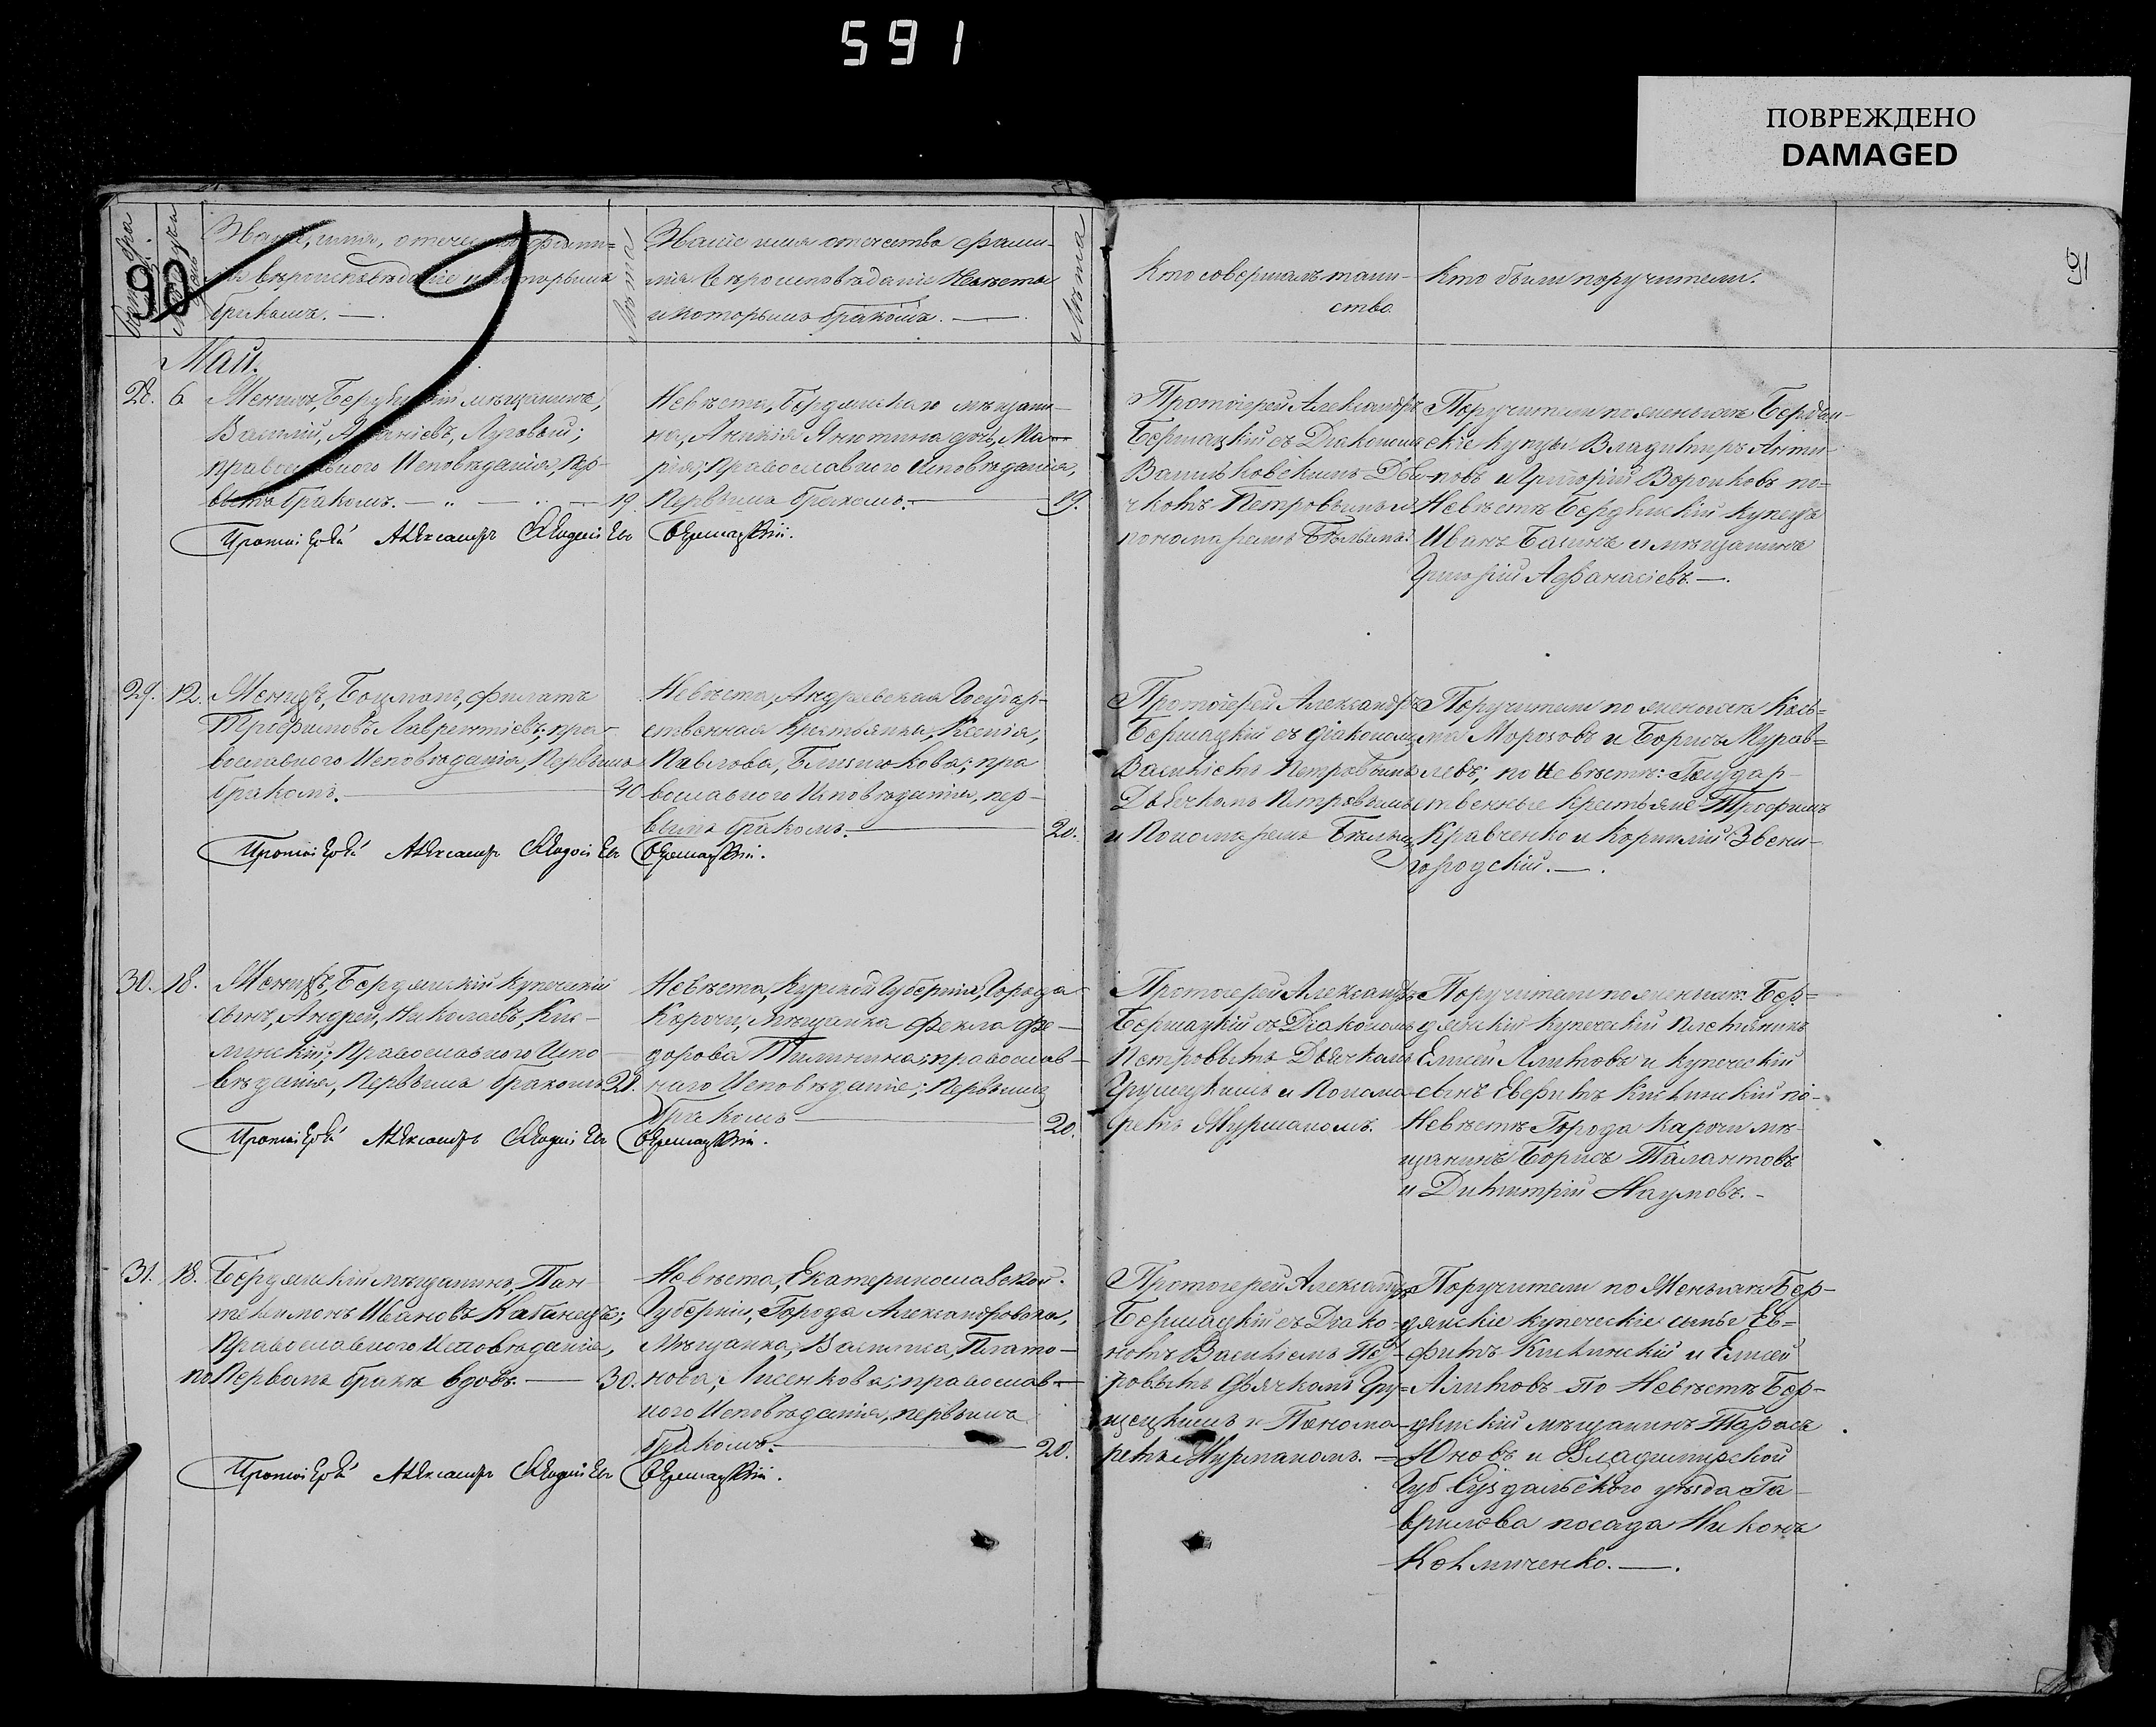 591
ПОВРЕЖДЕНО
DAMAGED
90
Званіе, имя, отечество фами=
вѣроисповѣданіе и которымъ
бракомъ. —.
Лѣта
Званіе имя отечество фами-
лія вѣроисповѣданіе Невѣсты
и которымъ бракомъ. —.
Лѣта
Кто совершалъ таин-
ство.
Кто были поручители.
91
Май.
28. 6
Женихъ, Бердянскій мѣщанинъ,
Василій, Луговый;
православного Исповѣданія, пер-
вымъ бракомъ. — 19.
Протоіерей Александръ
Бершацкій.
Невѣста, Бердянскаго мѣщани-
на, Аникія Анютина дочь, Ма-
рія; православного Исповѣданія,
Первымъ бракомъ. — 19.
Протоіерей Александръ
Бершацкій съ Діакономъ
Дья-
чкомъ Петровымъ и
пономаремъ Бѣлымъ.
Поручители по женихѣ Бердян-
скіе купцы Владимиръ Анти-
повъ и Григорій Воронковъ по=
Невѣстѣ Бердянскій купецъ
Иванъ и мѣщанинъ
Григорій Афанасіевъ. —.
29. 12.
Женихъ, Боцманъ, Филатъ
Трофимовъ Лаврентіевъ; пра-
вославного Исповѣданія, Первымъ
бракомъ. — 40
Протоіерей Александръ
Бершацкій.
Невѣста, Андреевская Государ-
ственная Крестьянка, Ксенія,
Павлова, Близнюкова; пра
вославного Исповѣданія, пер-
вымъ бракомъ. — 20.
Протоіерей Александръ
Бершацкій съ діакономъ
Василіемъ Петровымъ
Дьячкомъ Петровымъ
и Пономаремъ Бѣлымъ
Поручители по женихѣ Козь=
ма Морозовъ и Борисъ Мурав=
левъ; по Невѣстѣ: Государ-
ственные Крестьяне Трофимъ
Кравченко и Корнилій Звени-
городскій. —.
30. 18.
Женихъ, Бердянскій Купеческій
сынъ, Андрей, Николаевъ, Ки-
линскій; Православного Испо-
вѣданія, Первымъ бракомъ 21.
Протоіерей Александръ
Бершацкій.
Невѣста, Курской Губерніи, Города
Корочи, Мѣщанка Фекла Фе-
дорова православ-
ного Исповѣданіе; Первымъ
бракомъ — 20.
Протоіерей Александръ
Бершацкій съ Діакономъ
Петровымъ Дьячкомъ
Грушецкимъ и Понома-
ремъ Журманомъ.
Поручители по женихѣ: Бер=
дянскій купеческій племянникъ
Елисей и купеческій
сынъ Евфимъ Килинскій по-
Невѣстѣ Города Карочи мѣ-
щанинъ Борисъ Талантовъ
и Димитрій Наумовъ. -
31. 18.
Бердянскій мѣщанинъ, Пан-
телеимонъ Ивановъ Кабанецъ;
Православного Исповѣданія,
по Первомъ бракѣ вдовъ. — 30.
Протоіерей Александръ
Бершацкій.
Невѣста, Екатеринославской
Губерніи, Города Александровска,
Мѣщанка, Василиса, Плато-
нова, Лисенкова; православ-
ного Исповѣданія, первымъ
бракомъ. — 20.
Протоіерей Александръ
Бершацкій съ Діако-
номъ Василіемъ Пет-
ровымъ Дьячкомъ Гру=
щецкимъ и Понома-
ремъ Журманомъ. =
Поручители по Женихѣ Бер-
дянскіе купеческіе сынье Ев=
фимъ Килинскій и Елисей
по Невѣстѣ Бер-
дянскій мѣщанинъ Тарасъ
Юновъ и Владимирской
Губ Суздальского уѣзда Га-
врилова посада Никонъ